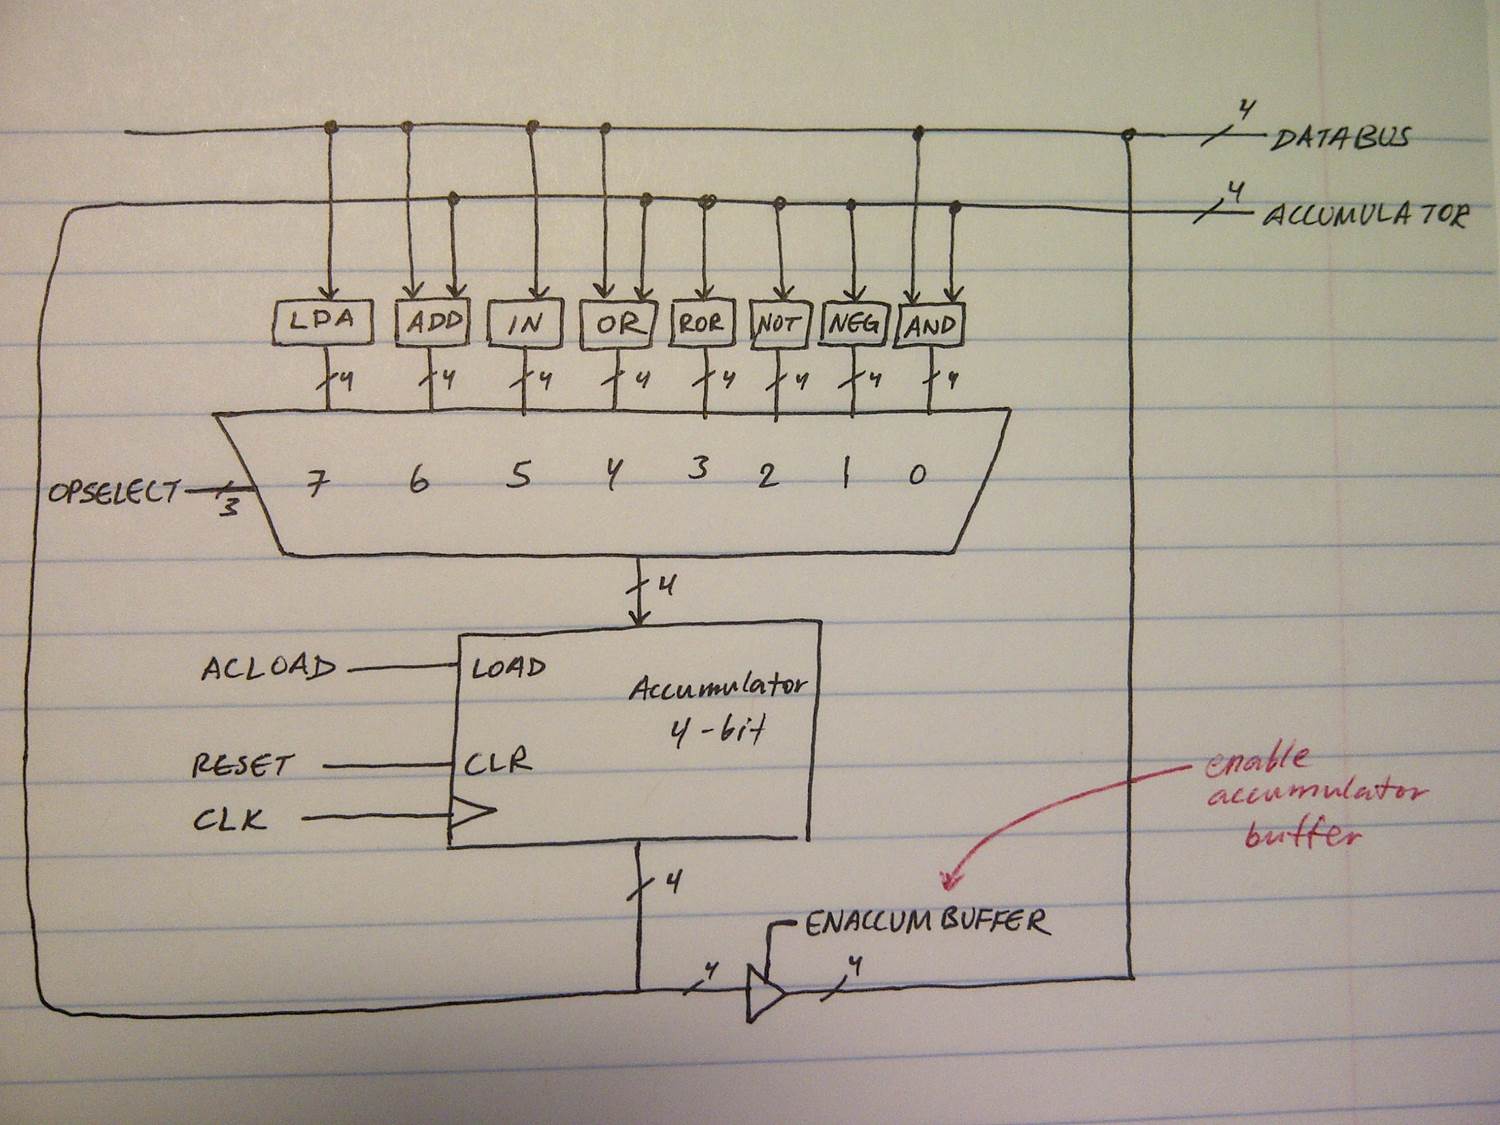 4
DATABUS
4
ACCUMULATOR
LDA ADD IN OR ROR NOT NEG AND
4 4 4 4 4 4 4 4
OPSELECT 3
7 6 5 4 3 2 1 0
4
ACLOAD LOAD
Accumulator
4-bit
RESET CLR
CLK
enable
accumulator
buffer
4
ENACCUMBUFFER
4 4